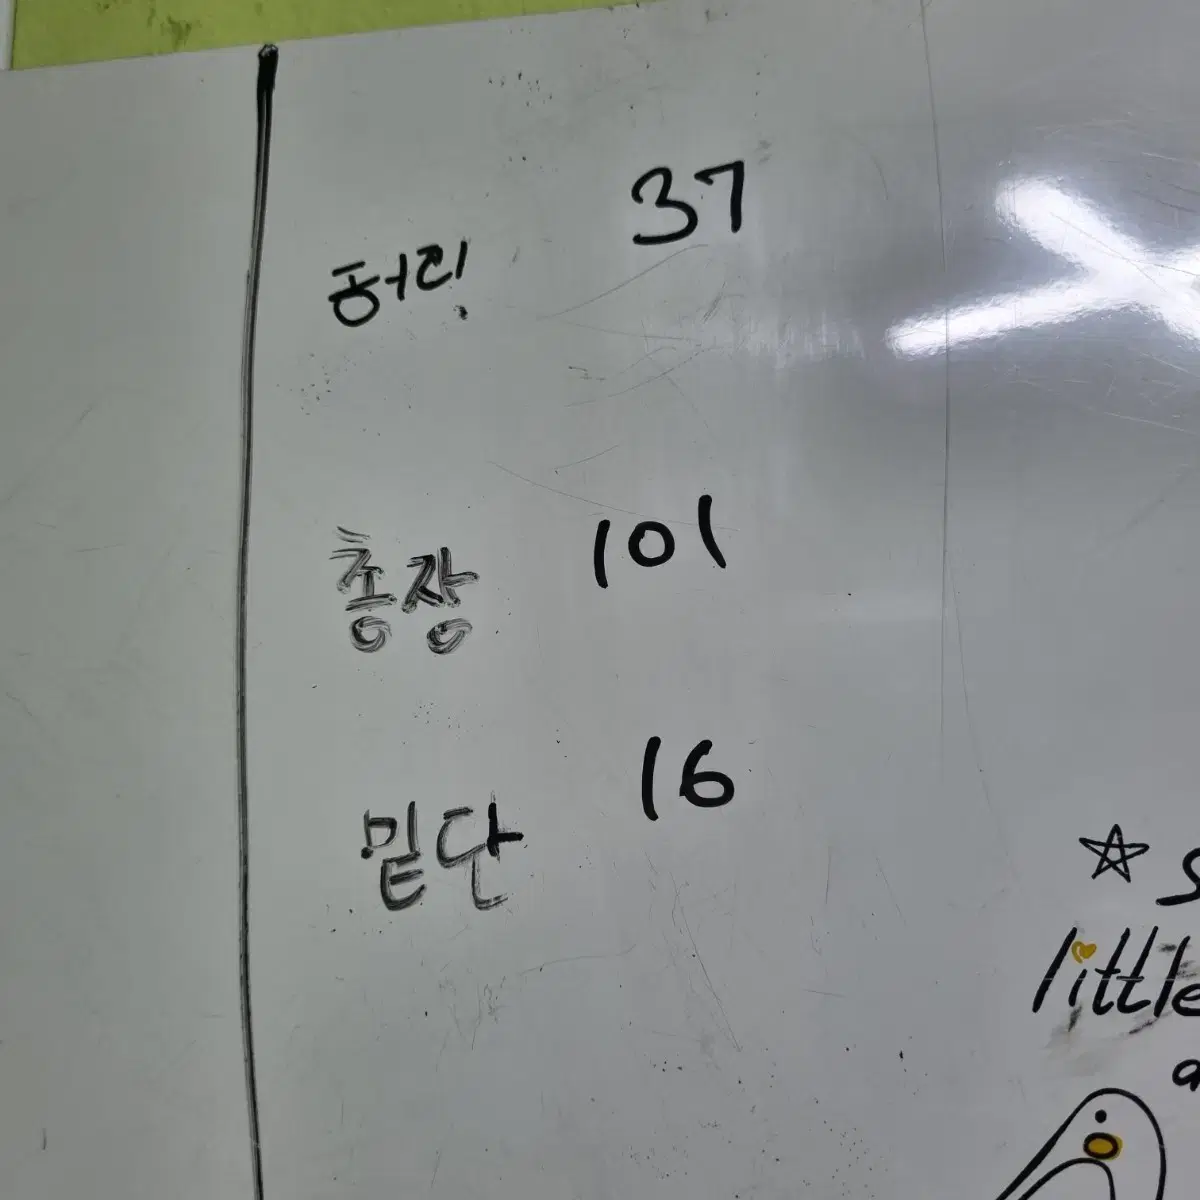 허리 37
총장 101
밑단 16
little